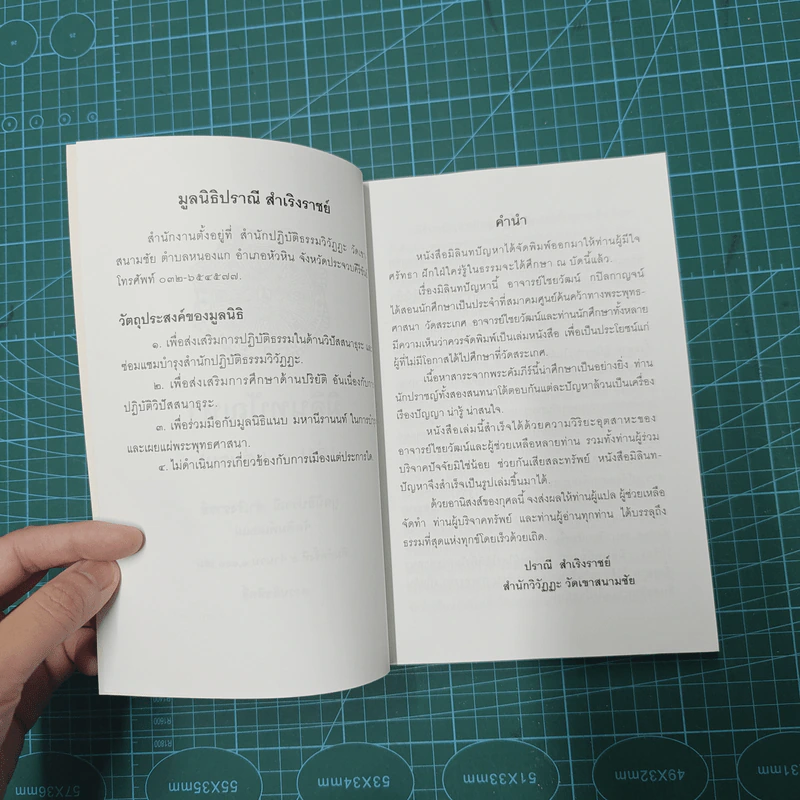 มูลนิธิปราณี สำเริงราชย์
สำนักงานตั้งอยู่ที่ สำนักปฏิบัติธรรมวิวัฏฏะ
สนามชัย ตำบลหนองแก อำเภอหัวหิน จังหวัดประจวบคีรีขันธ์
โทรศัพท์ ๐๓๒-๖๕๔๕๗๗.
วัตถุประสงค์ของมูลนิธิ
๑. เพื่อส่งเสริมการปฏิบัติธรรมในด้านวิปัสสนาธุระ และ
ซ่อมแซมบำรุงสำนักปฏิบัติธรรมวิวัฏฏะ.
๒. เพื่อส่งเสริมการศึกษาด้านปริยัติ อันเนื่องกับการ
ปฏิบัติวิปัสสนาธุระ.
๓. เพื่อร่วมมือกับมูลนิธิแนบ มหานีรานนท์ ในการ
และเผยแผ่พระพุทธศาสนา.
๔. ไม่ดำเนินการเกี่ยวข้องกับการเมืองแต่ประการใด.
คำนำ
หนังสือมิลินทปัญหาได้จัดพิมพ์ออกมาให้ท่านผู้มีใจ
ศรัทธา ฝักใฝ่ใคร่รู้ในธรรมจะได้ศึกษา ณ บัดนี้แล้ว.
เรื่องมิลินทปัญหานี้ อาจารย์ไชยวัฒน์ กปิลกาญจน์
ได้สอนนักศึกษาเป็นประจำที่สมาคมศูนย์ค้นคว้าทางพระพุทธ-
ศาสนา วัดสระเกศ อาจารย์ไชยวัฒน์และท่านนักศึกษาทั้งหลาย
มีความเห็นว่าควรจัดพิมพ์เป็นเล่มหนังสือ เพื่อเป็นประโยชน์แก่
ผู้ที่ไม่มีโอกาสได้ไปศึกษาที่วัดสระเกศ.
เนื้อหาสาระจากพระคัมภีร์นี้น่าศึกษาเป็นอย่างยิ่ง ท่าน
นักปราชญ์ทั้งสองสนทนาโต้ตอบกันแต่ละปัญหาล้วนเป็นเครื่อง
เรืองปัญญา น่ารู้ น่าสนใจ.
หนังสือเล่มนี้สำเร็จได้ด้วยความวิริยะอุตสาหะของ
อาจารย์ไชยวัฒน์และผู้ช่วยเหลือหลายท่าน รวมทั้งท่านผู้ร่วม
บริจาคปัจจัยมิใช่น้อย ช่วยกันเสียสละทรัพย์ หนังสือมิลินท-
ปัญหาจึงสำเร็จเป็นรูปเล่มขึ้นมาได้.
ด้วยอานิสงส์ของกุศลนี้ จงส่งผลให้ท่านผู้แปล ผู้ช่วยเหลือ
จัดทำ ท่านผู้บริจาคทรัพย์ และท่านผู้อ่านทุกท่าน ได้บรรลุถึง
ธรรมที่สุดแห่งทุกข์โดยเร็วด้วยเถิด.
ปราณี สำเริงราชย์
สำนักวิวัฏฏะ วัดเขาสนามชัย
57X36mm
55X35mm
53X34mm
51X33mm
49X32mm
X31mm